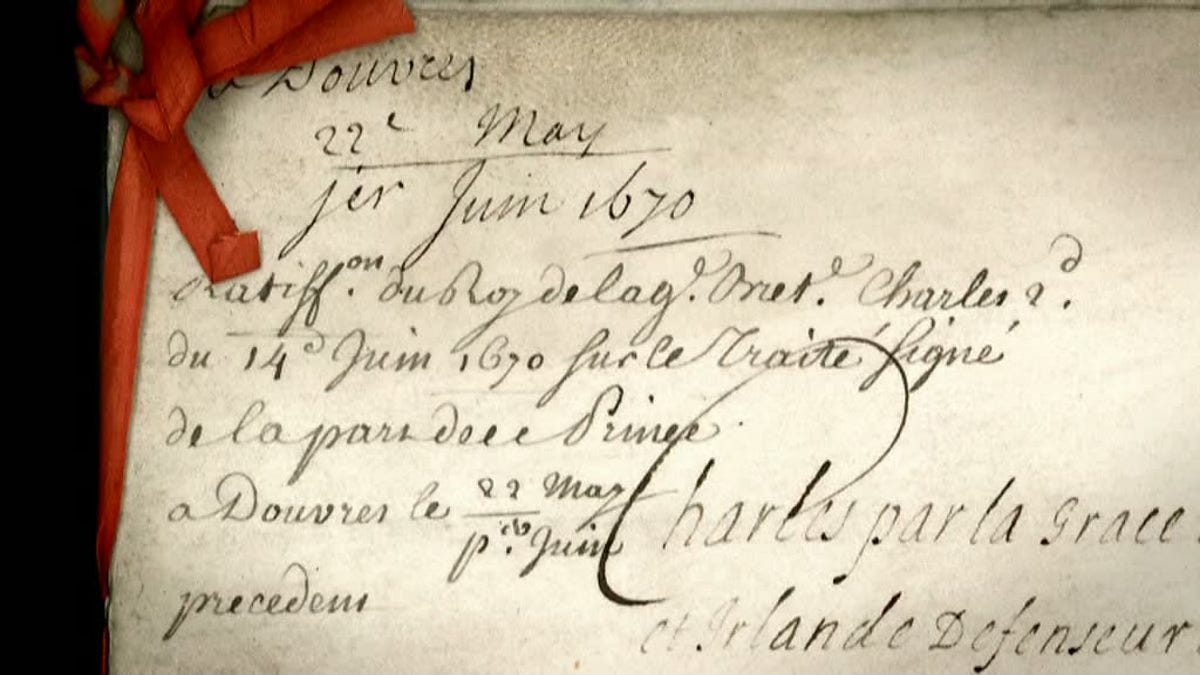 a Douvres
22e May
jer Juin 1670
Ratiff.on du Roy de la g.e Bret.e Charles 2.d
du 14e Juin 1670 sur le Traité signé
de la part de ce Prince
a Douvres le 22 May
p.er Juin
precedent
Charles par la Grace
et Irlande Defenseur